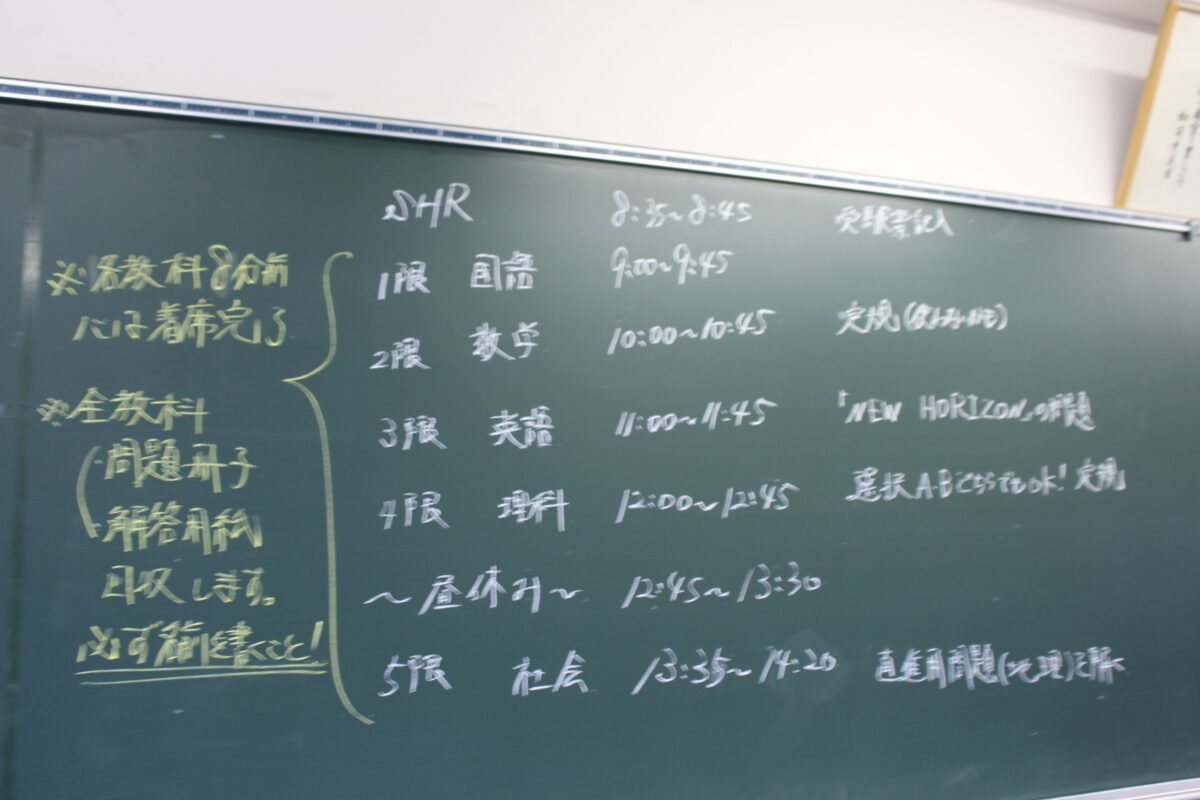 ※各教科8分前
には着席完了
※全教科
問題冊子
解答用紙
回収します。
必ず名前を書くこと!
SHR 8:35~8:45 受験票記入
1限 国語 9:00~9:45
2限 数学 10:00~10:45 定規
3限 英語 11:00~11:45 「NEW HORIZON」の問題
4限 理科 12:00~12:45 選択A・Bどちらでもok! 定規
~昼休み~ 12:45~13:30
5限 社会 13:35~14:20 直進用問題(地理)を解く